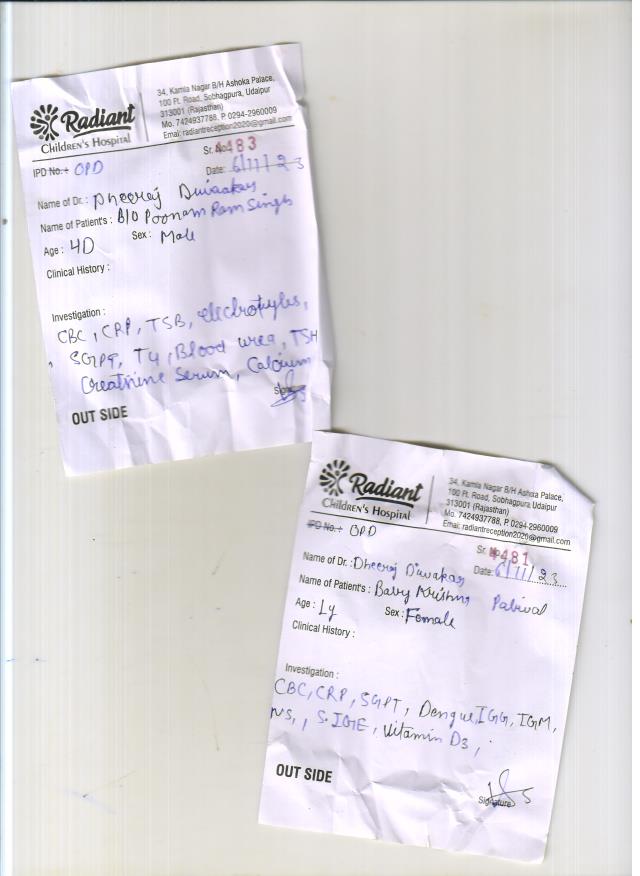 Radiant
Children's Hospital
34, Kamla Nagar B/H Ashoka Palace,
100 Ft. Road, Sobhagpura, Udaipur
313001 (Rajasthan)
Mo. 7424937788, P. 0294-2960009
Emai: radiantreception2020@gmail.com
Sr. No. 483
IPD No.: OPD
Date: 6/11/23
Name of Dr.: Dheeraj Diwakar
Name of Patient's: B/O Poonam Ram Singh
Age: 4D Sex: Male
Clinical History:
Investigation:
CBC, CRP, TSB, electrolytes,
SGPT, T4, Blood urea, TSH
Creatnine Serum, Calcium
Signature
OUT SIDE
Radiant
Children's Hospital
34, Kamla Nagar B/H Ashoka Palace,
100 Ft. Road, Sobhagpura Udaipur
313001 (Rajasthan)
Mo. 7424937788, P. 0294-2960009
Emai: radiantreception2020@gmail.com
Sr. No. 481
IPD No.: OPD
Date: 6/11/23
Name of Dr.: Dheeraj Diwakar
Name of Patient's: Baby Krishna
Age: 1y Sex: Female
Clinical History:
Investigation:
CBC, CRP, SGPT, Dengue IGG, IGM,
NS, S. IGE, Vitamin D3,
OUT SIDE
Signature